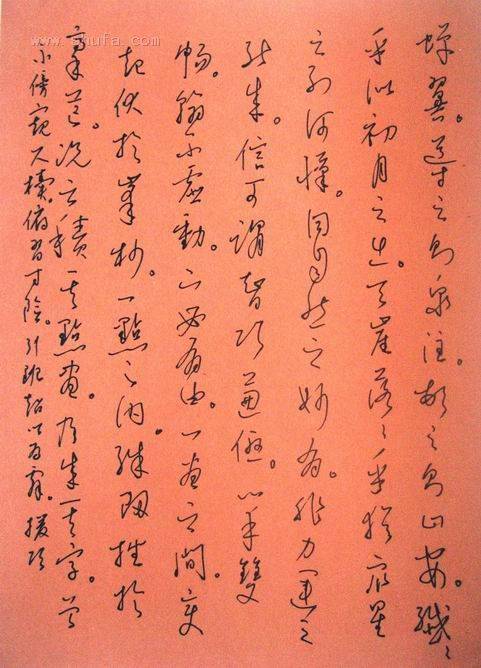 www.shufa.com
蟬翼。導之則泉注。頓之則山安。纖〻
乎似初月之出。天崖落〻乎猶眾星
之列河漢。同自然之妙有。非力運之
能成。信可謂智巧兼優。心手雙
暢。翰不虛動。下必有由。一畫之間。變
起伏於峯杪。一點之內。殊衄挫於
毫芒。況云積其點畫。乃成其字。曾
不傍窺尺牘。俯習寸陰。引班超以為辭。援項